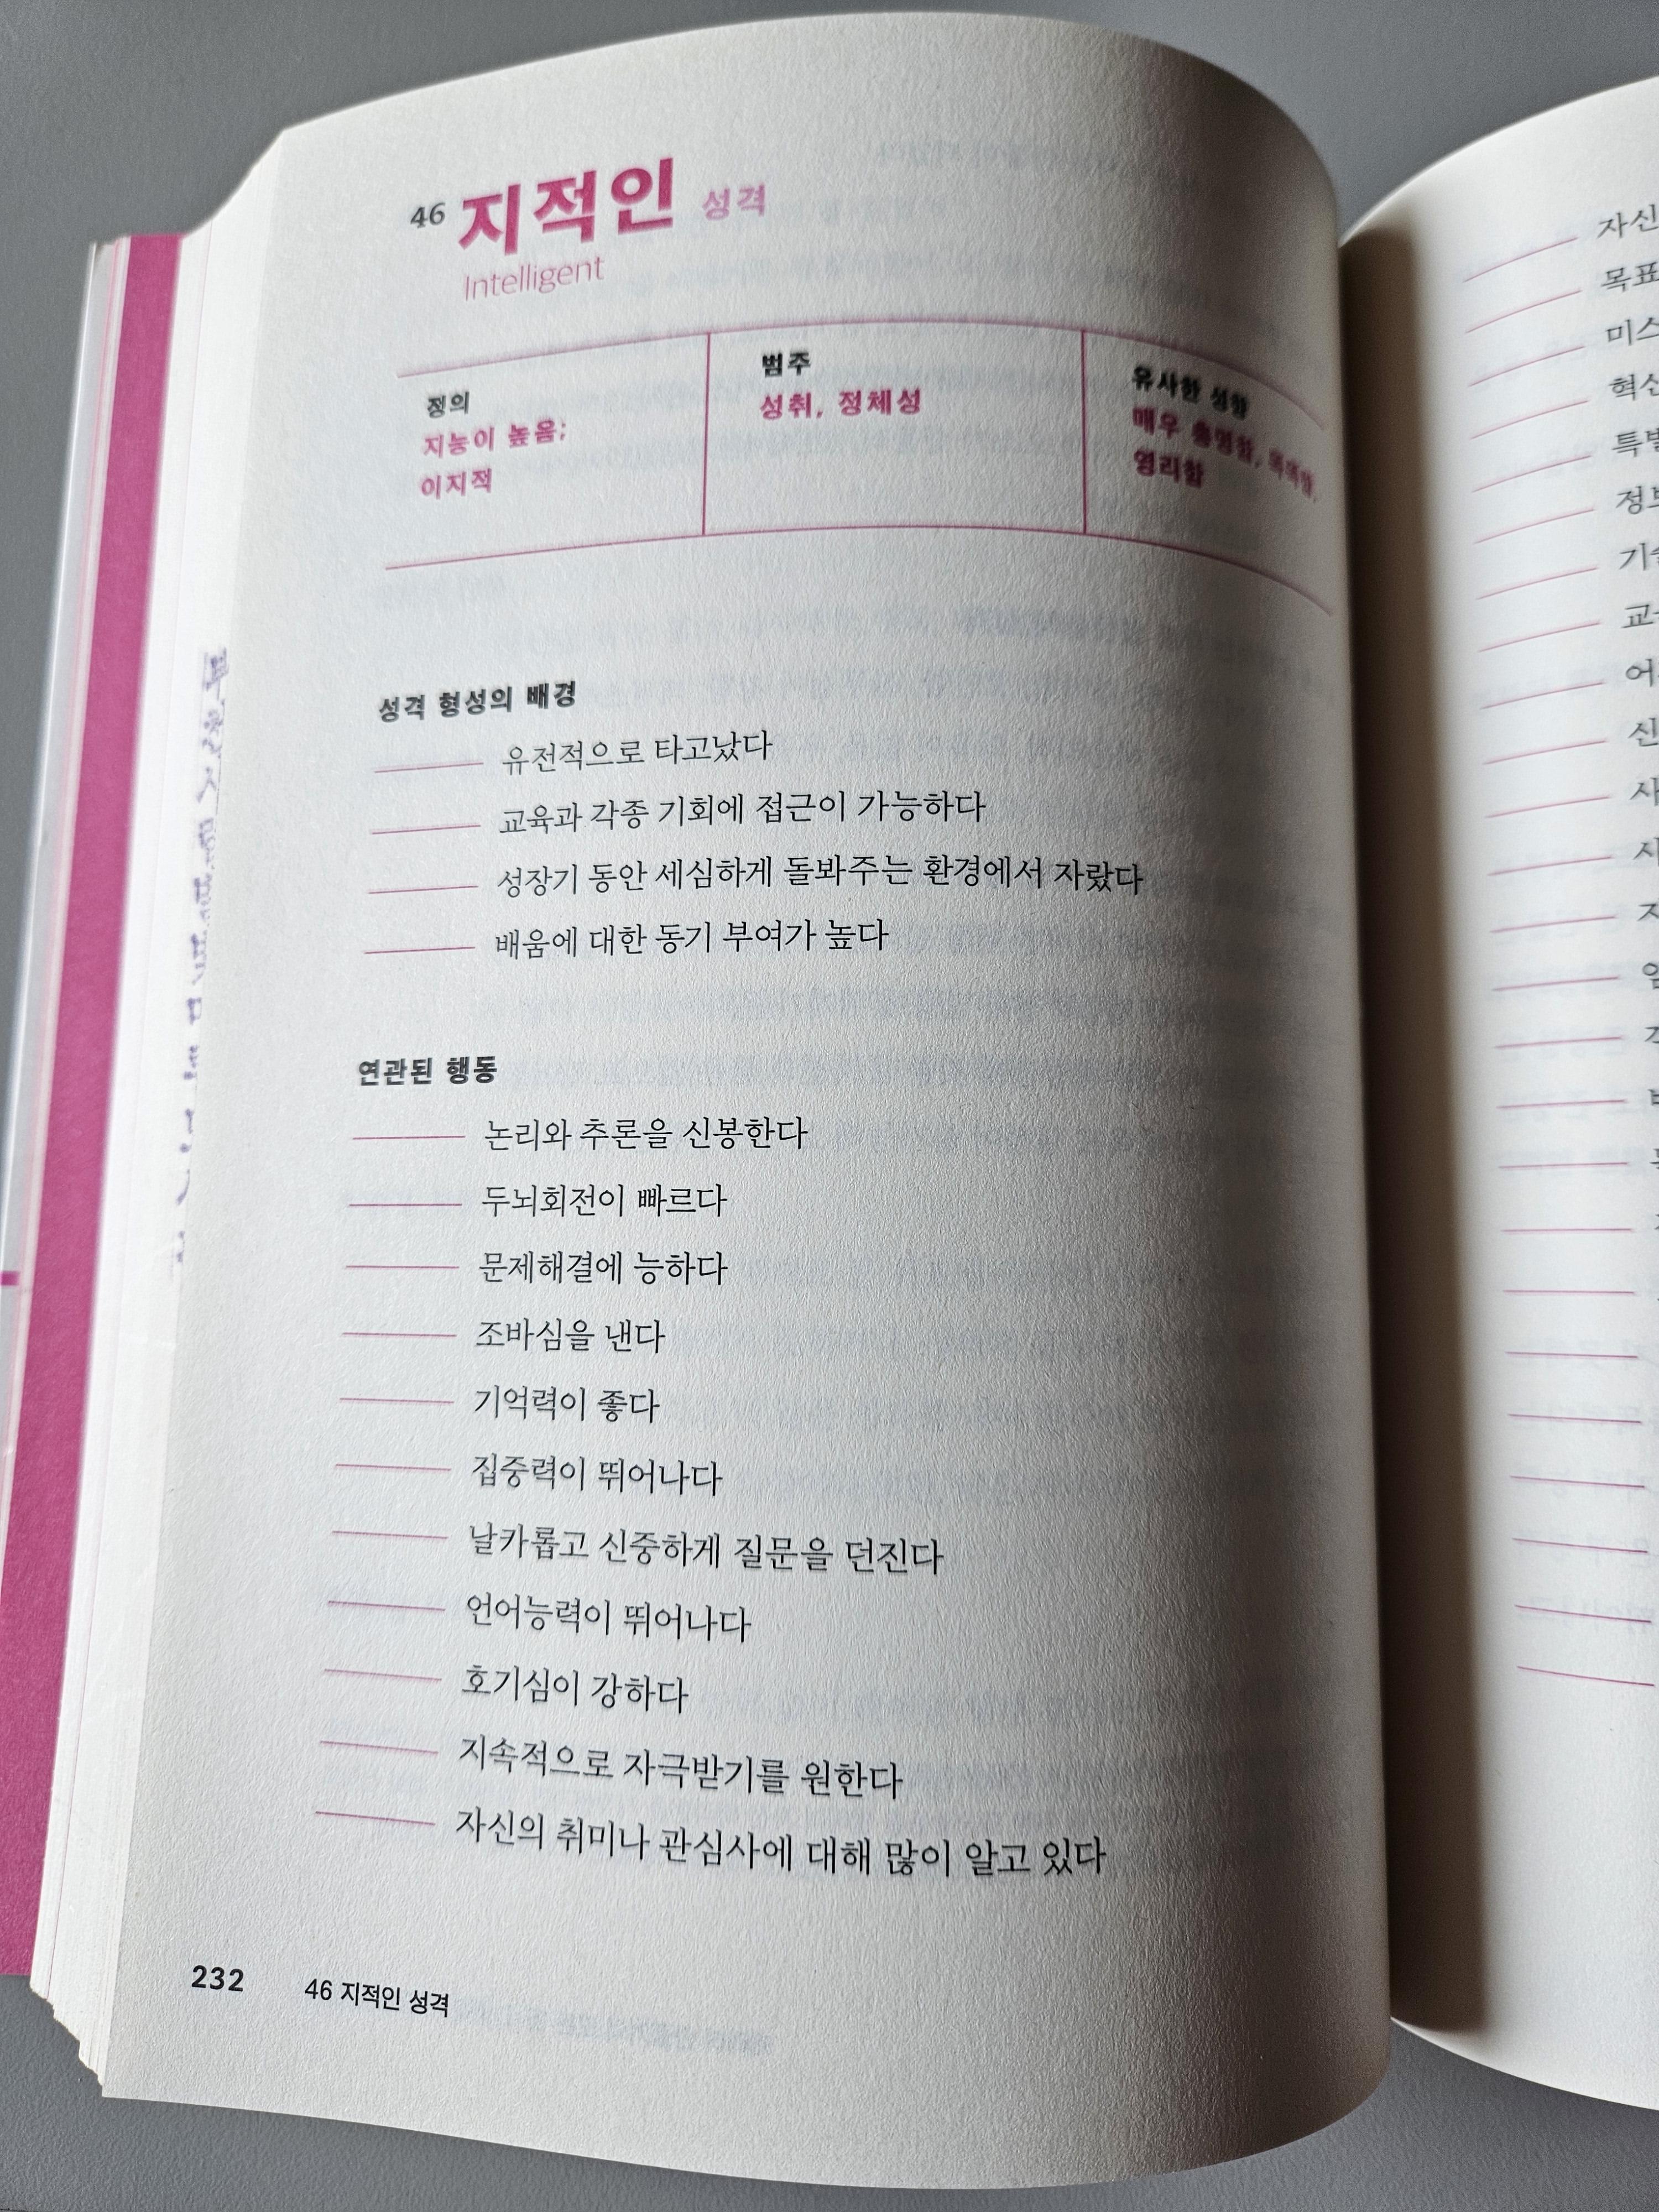 46 지적인 성격
Intelligent
정의
지능이 높음;
이지적
범주
성취, 정체성
유사한 성향
매우 총명함, 똑똑함,
영리함
성격 형성의 배경
유전적으로 타고났다
교육과 각종 기회에 접근이 가능하다
성장기 동안 세심하게 돌봐주는 환경에서 자랐다
배움에 대한 동기 부여가 높다
연관된 행동
논리와 추론을 신봉한다
두뇌회전이 빠르다
문제해결에 능하다
조바심을 낸다
기억력이 좋다
집중력이 뛰어나다
날카롭고 신중하게 질문을 던진다
언어능력이 뛰어나다
호기심이 강하다
지속적으로 자극받기를 원한다
자신의 취미나 관심사에 대해 많이 알고 있다
232 46 지적인 성격
자신
목표